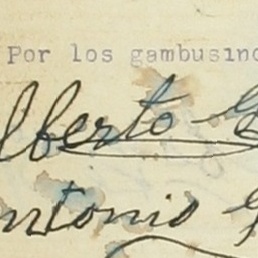 Por los gambusino
Alberto G
Antonio G